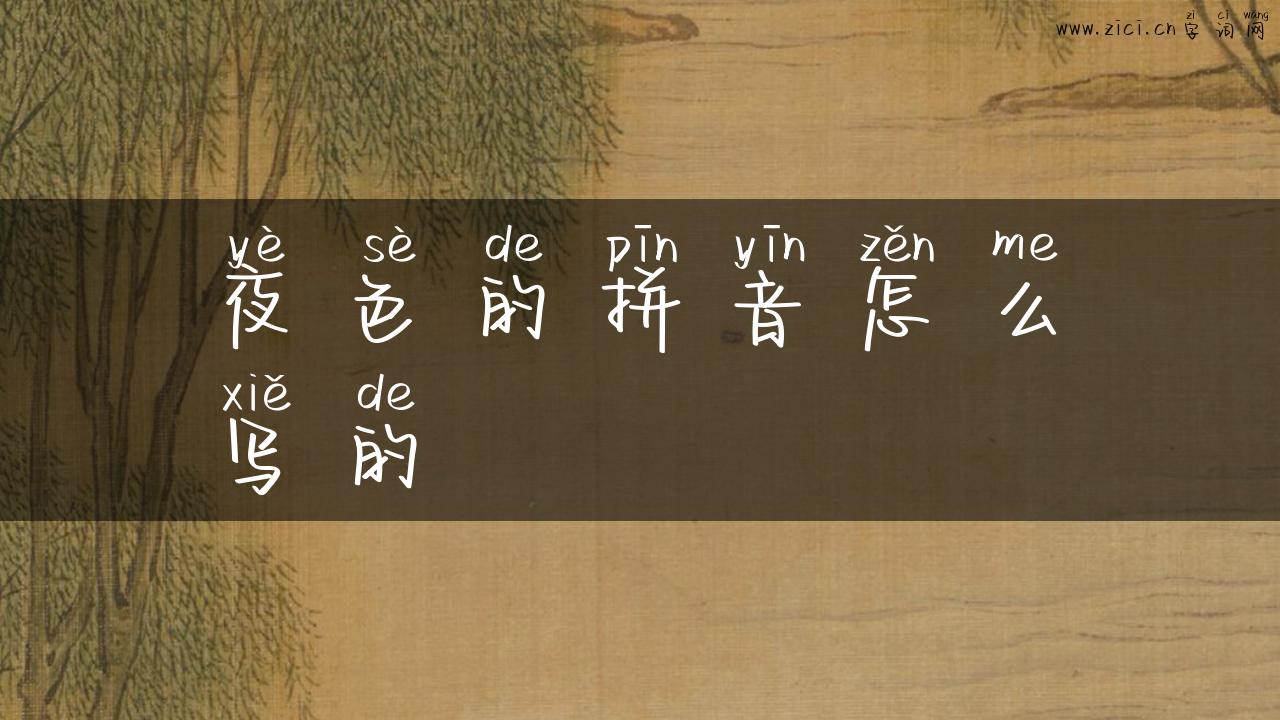 zì cí wǎng
www.zici.cn 字词网
yè sè de pīn yīn zěn me
夜色的拼音怎么
xiě de
写的